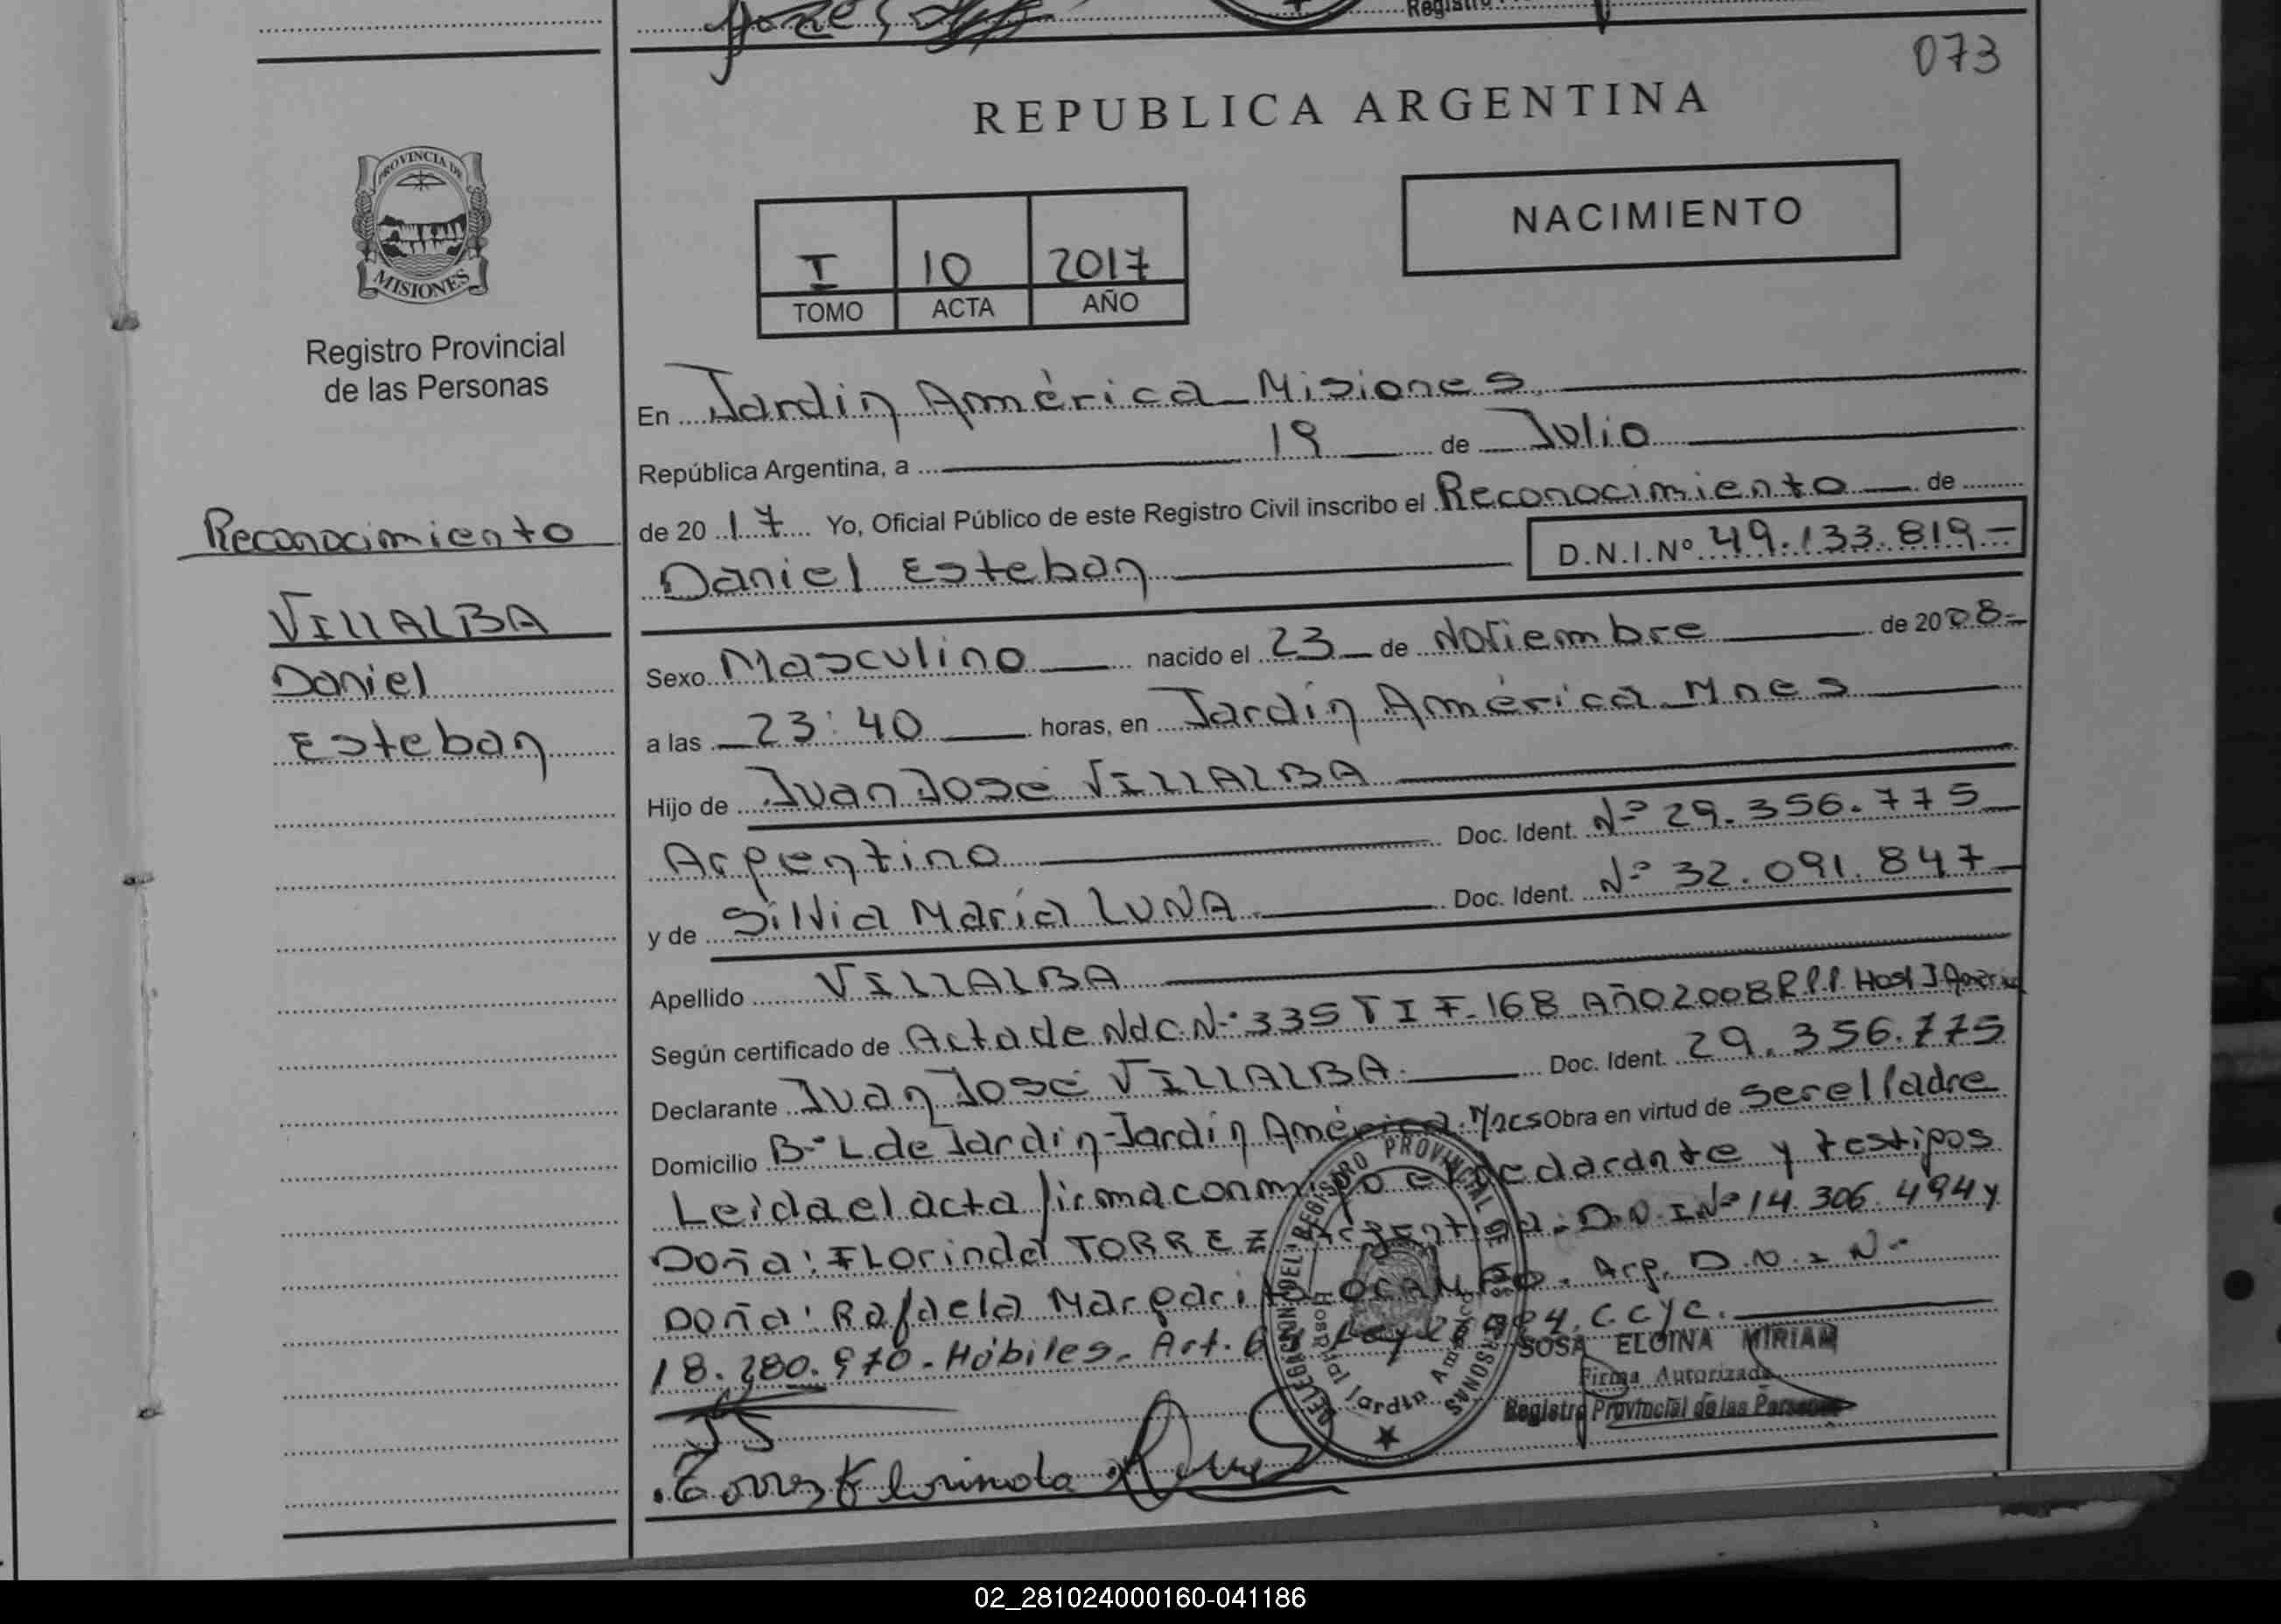 073
REPUBLICA ARGENTINA
PROVINCIA DE
MISIONES
Registro Provincial
de las Personas
NACIMIENTO
I 10 2017
TOMO ACTA AÑO
Reconocimiento
VILLALBA
Daniel
Esteban
En Jardín América - Misiones
República Argentina, a 19 de Julio
de 20 17 Yo, Oficial Público de este Registro Civil inscribo el Reconocimiento de
Daniel Esteban D.N.I.Nº 49.133.819-
Sexo Masculino nacido el 23 de Noviembre de 2008-
a las 23:40 horas, en Jardín América - Mnes
Hijo de Juan José VILLALBA
Argentino Doc. Ident. Nº 29.356.775
y de Silvia María LUNA Doc. Ident. Nº 32.091.847
Apellido VILLALBA
Según certificado de Acta de Nac. Nº 335 T I F-168 Año 2008 R.P.P. Host J América
Declarante Juan José VILLALBA Doc. Ident. 29.356.775
Domicilio Bº L. de Jardín - Jardín América. Mnes Obra en virtud de ser el Padre
Leida el acta firma conmigo el declarante y testigos
Doña: Florinda TORREZ Argentina. D.N.I Nº 14.306.494 y
Doña: Rafaela Margarita OCAMPO. Arg. D.N.I Nº
18.280.970. Hábiles. Art. Ley 26.994. C.C y C.
DELEGACION DEL REGISTRO PROVINCIAL DE LAS PERSONAS
Hospital Jardín América
SOSA ELOINA MIRIAM
Firma Autorizada
Registro Provincial de las Personas
Torrez Florinda
02_281024000160-041186